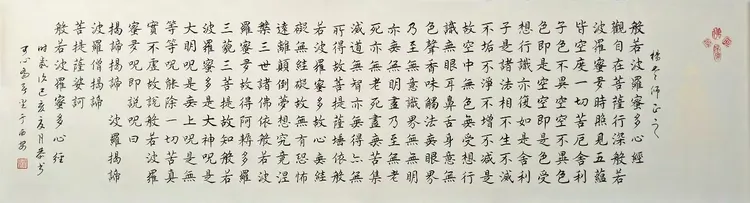 師正之
般若波羅蜜多心經
觀自在菩薩行深般若
波羅蜜多時照見五蘊
皆空度一切苦厄舍利
子色不異空空不異色
色即是空空即是色受
想行識亦復如是舍利
子是諸法相不生不滅
不垢不淨不增不減是
故空中無色無受想行
識無眼耳鼻舌身意無
色聲香味觸法無眼界
乃至無意識界無無明
亦無無明盡乃至無老
死亦無老死盡無苦集
滅道無智亦無得以無
所得故菩提薩埵依般
若波羅蜜多故心無罣
礙無罣礙故無有恐怖
遠離顛倒夢想究竟涅
槃三世諸佛依般若波
羅蜜多故得阿耨多羅
三藐三菩提故知般若
波羅蜜多是大神呪是
大明呪是無上呪是無
等等呪能除一切苦真
實不虛故說般若波羅
蜜多呪即說呪曰
揭諦揭諦 波羅揭諦
波羅僧揭諦
菩提薩婆訶
般若波羅蜜多心經
时歲次己亥夏月恭书
于西安